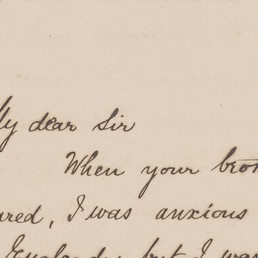 My dear Sir
When your bro
ured, I was anxious
England, but I was